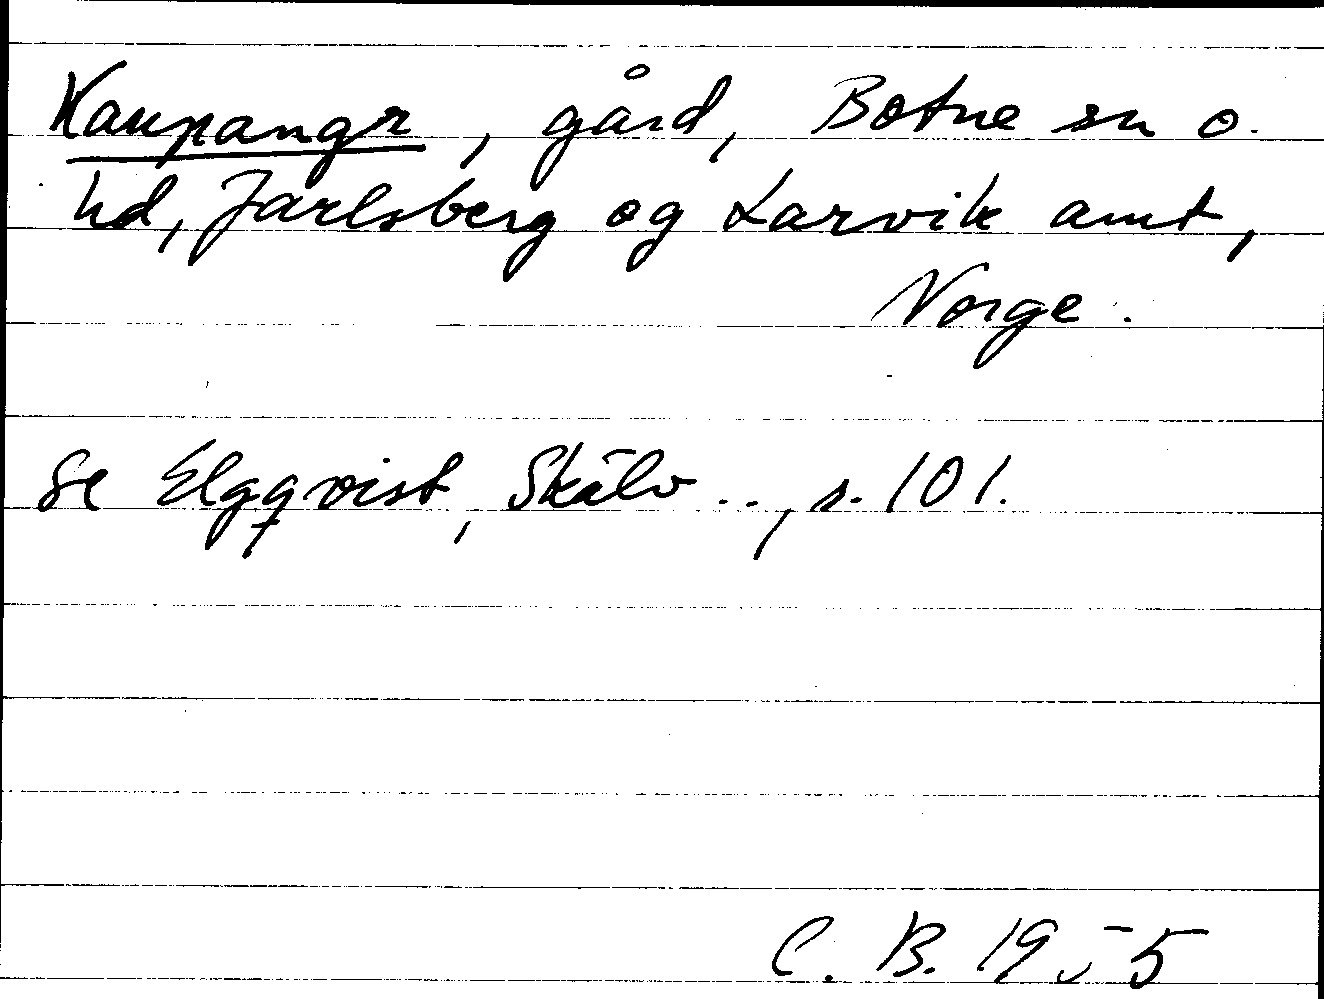 Kaupangr, gård, Botne sn o.
hd, Jarlsberg og Larvik amt,
Norge.
se Elgqvist, Skälv .., s. 101.
C. B. 1955